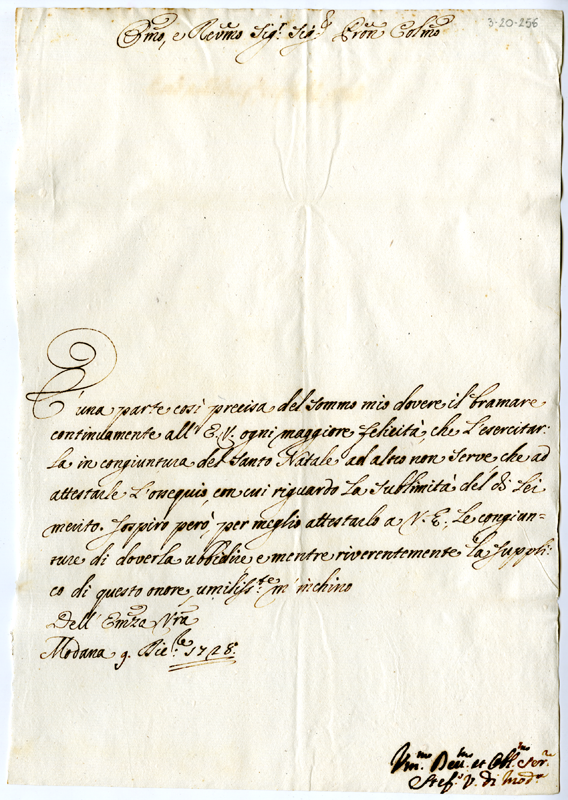 3-20-256
Emo, e Revmo Sigr. Sigr. Pron Colmo
È una parte così precisa del sommo mio dovere il bramare
continuamente all'E.V. ogni maggiore felicità, che l'esercitar-
la in congiuntura del Santo Natale ad altro non serve, che ad
attestarle l'ossequio, con cui riguardo la sublimità del di Lei
merito. Sospiro però, per meglio attestarlo a V.E., le congiun=
ture di doverla ubbidire e mentre riverentemente la suppli
co di questo onore, umilisste m'inchino
Dell'Emza Vra
Modana 9. Bre 1728.
Umo. Devmo. et Obbmo Serre
Stefo V. di Moda